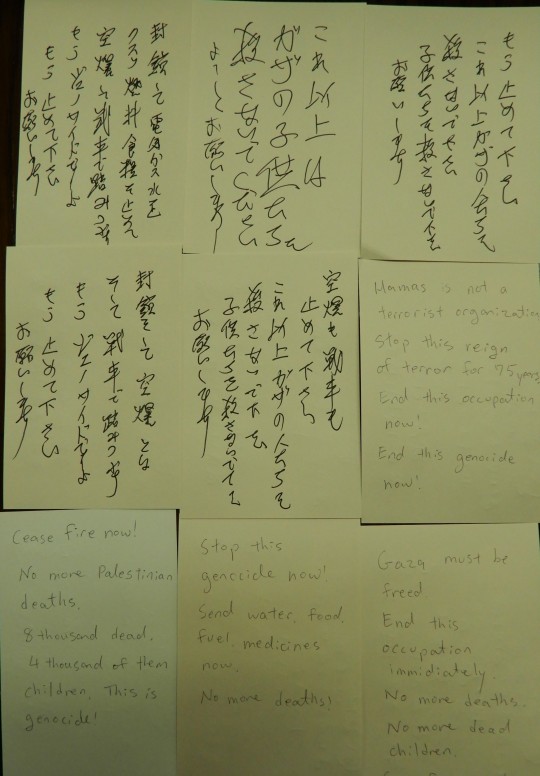 封鎖して電気ガス水を
クスリ燃料食糧を止めて
空爆し戦車で踏みつぶす
もうジェノサイドだよ
もう止めて下さい
お願いします
これ以上は
ガザの子供たちを
殺さないでください
よろしくお願いします
もう止めて下さい
これ以上ガザの人たちを
殺さないで下さい
子供たちを殺さないで下さい
お願いします
封鎖をして空爆
そして戦車で踏みつぶす
もうジェノサイドだよ
もう止めて下さい
お願いします
空爆も戦車も
止めて下さい
これ以上ガザの人たちを
殺さないで下さい
子供たちを殺さないで下さい
お願いします
Hamas is not a
terrorist organization
Stop this reign
of terror for 75 years
End this occupation
now!
End this genocide
now!
Cease fire now!
No more Palestinian
deaths.
8 thousand dead.
4 thousand of them
children. This is
genocide!
Stop this
genocide now!
Send water, food,
fuel, medicines
now.
No more deaths!
Gaza must be
freed
End this
occupation
immidiately.
No more deaths.
No more dead
children.